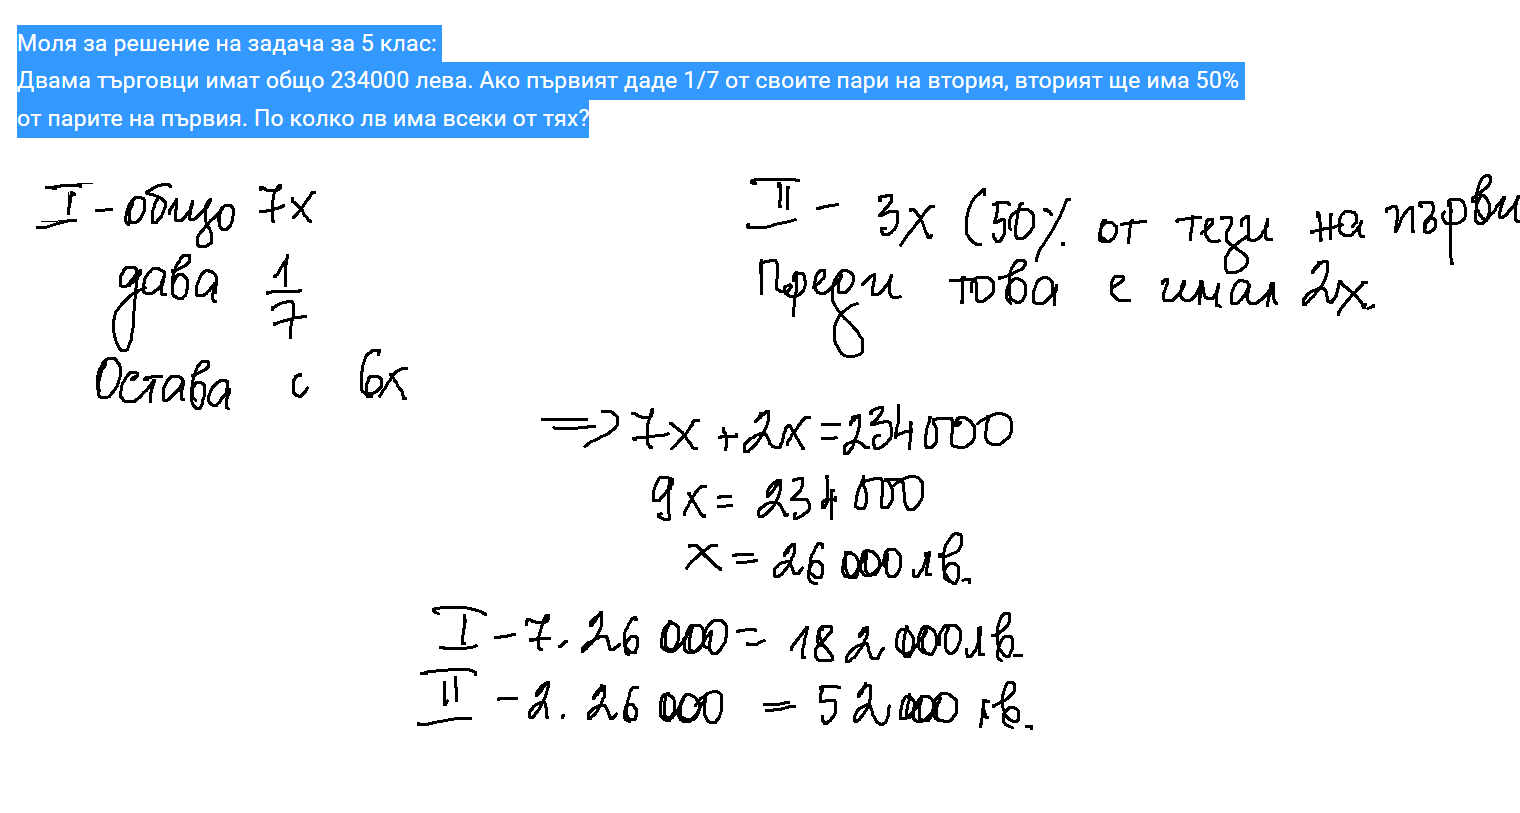 Моля за решение на задача за 5 клас:
Двама търговци имат общо 234000 лева. Ако първият даде 1/7 от своите пари на втория, вторият ще има 50%
от парите на първия. По колко лв има всеки от тях?
I - общо 7x
II - 3x (50% от тези на първи
дава 1/7
Преди това е имал 2x
Остава с 6x
=> 7x + 2x = 234000
9x = 234000
x = 26 000 лв.
I - 7. 26 000 = 182 000 лв.
II - 2. 26 000 = 52 000 лв.